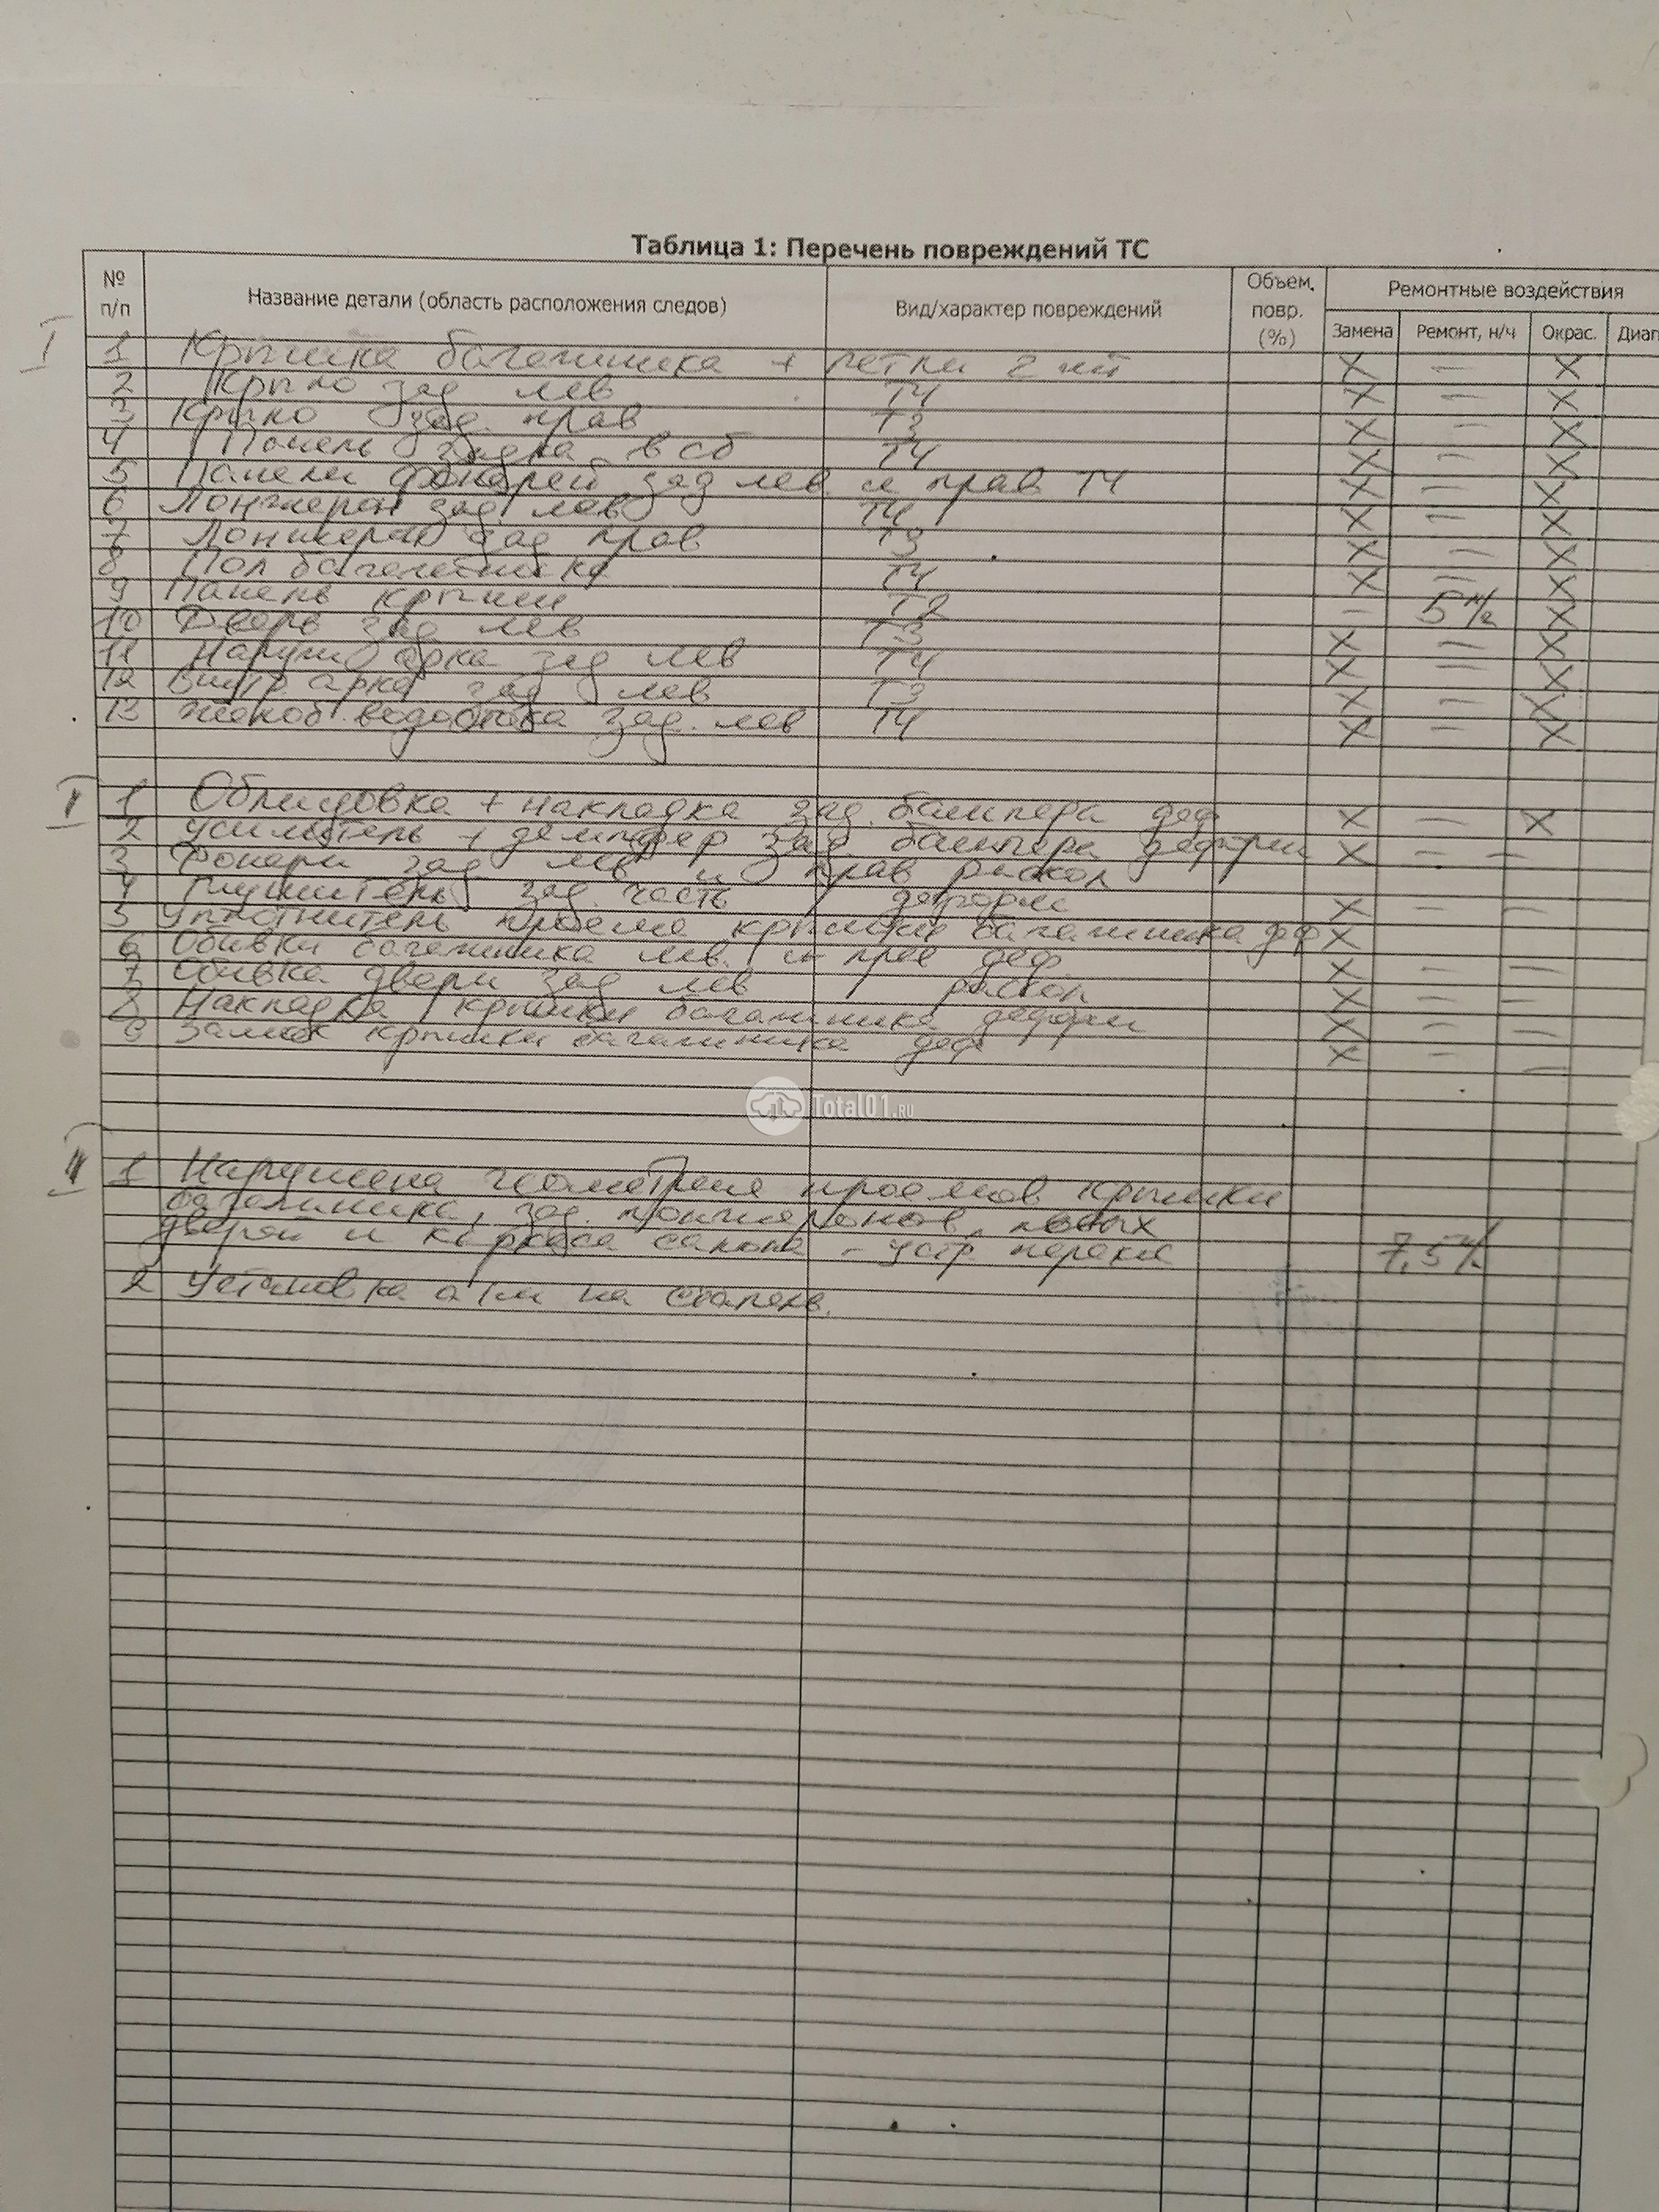 Таблица 1: Перечень повреждений ТС
№ п/п Название детали (область расположения следов) Вид/характер повреждений Объем. повр. (%) Ремонтные воздействия
Замена Ремонт, н/ч Окрас. Диаг
I
1 Крышка багажника + петли 2 шт X — X
2 Крыло зад лев Т4 X — X
3 Крыло зад. прав Т3 X — X
4 Панель задка в сб Т4 X — X
5 Панели фонарей зад лев. и прав Т4 X — X
6 Лонжерон зад. лев Т4 X — X
7 Лонжерон зад прав Т3 X — X
8 Пол багажника Т4 X — X
9 Панель крыши Т2 — 5 н/ч X
10 Дверь зад лев Т3 X — X
11 Наружн арка зад лев Т4 X — X
12 Внутр арка зад лев Т3 X — X
13 Желоб водостока зад. лев Т4 X — X
I
1 Облицовка + накладка зад. бампера деф X — X
2 Усилитель + демпфер зад. бампера деформ X — —
3 Фонари зад лев и прав раскол
4 Глушитель зад. часть деформ X — —
5 Уплотнитель проема крышки багажника деф X
6 Обивки багажника лев. и прав деф X — —
7 Обивка двери зад лев раскол X — —
8 Накладка крышки багажника деформ X — —
9 Замок крышки багажника деф X — —
Total01.RU
II
1 Нарушена геометрия проемов крышки
багажника, зад. лонжеронов, левых
дверей и каркаса салона - устр. перекос 7,5 н/ч
2 Установка а/м на стапель.